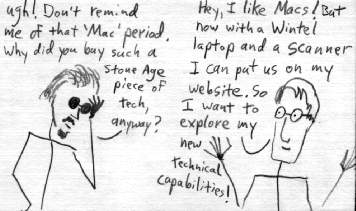 ugh! Don't remind
me of that 'Mac' period.
Why did you buy such a
Stone Age
piece of
tech,
anyway?
Hey, I like Macs! But
now with a Wintel
laptop and a scanner
I can put us on my
website. So
I want to
explore my
new
technical
capabilities!